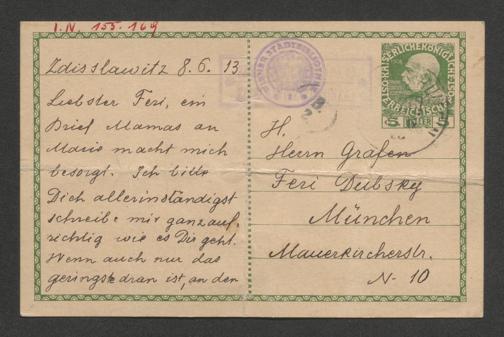 I. N. 155.169
Zdisslawitz 8.6.13
Liebster Feri, ein
Brief Mamas an
Mario macht mich
besorgt. Ich bitte
Dich allerinständigst
schreibe mir ganz auf,
richtig wie es Dir geht.
Wenn auch nur das
geringste dran ist, an den
WIENER STADTBIBLIOTHEK
KAISERLICHE KÖNIGLICHE
5
H.
Herrn Grafen
Feri Dubsky
München
Mauerkircherstr.
N- 10